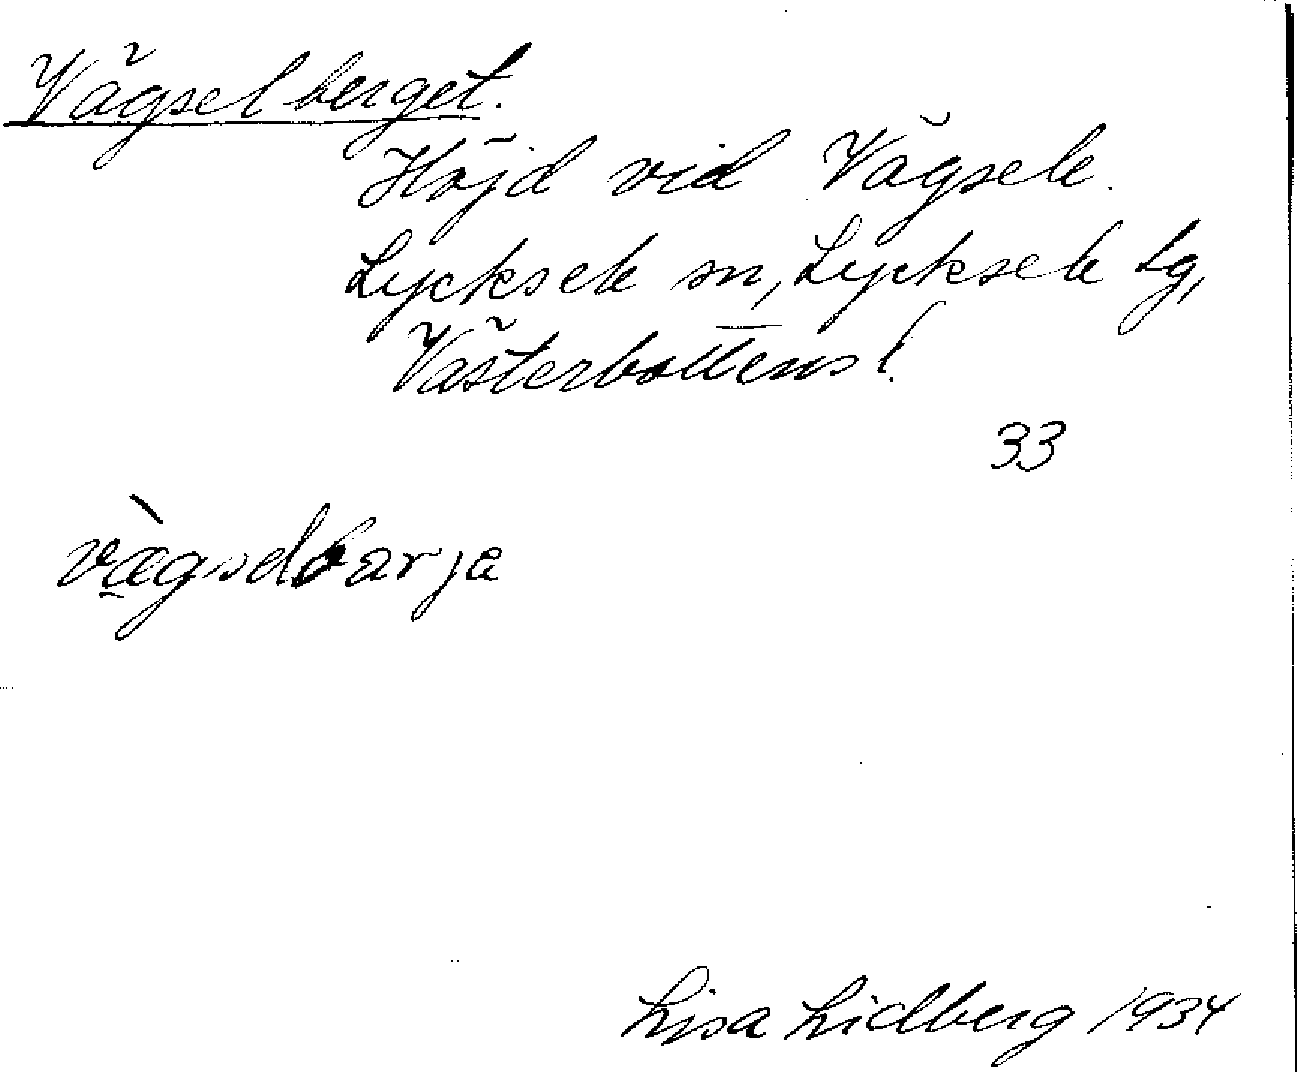 Vägselberget.
Höjd vid Vägsele.
Lycksele sn, Lycksele lg,
Västerbottens l.
33
væ̀gselbarjə
Lisa Lidberg 1934